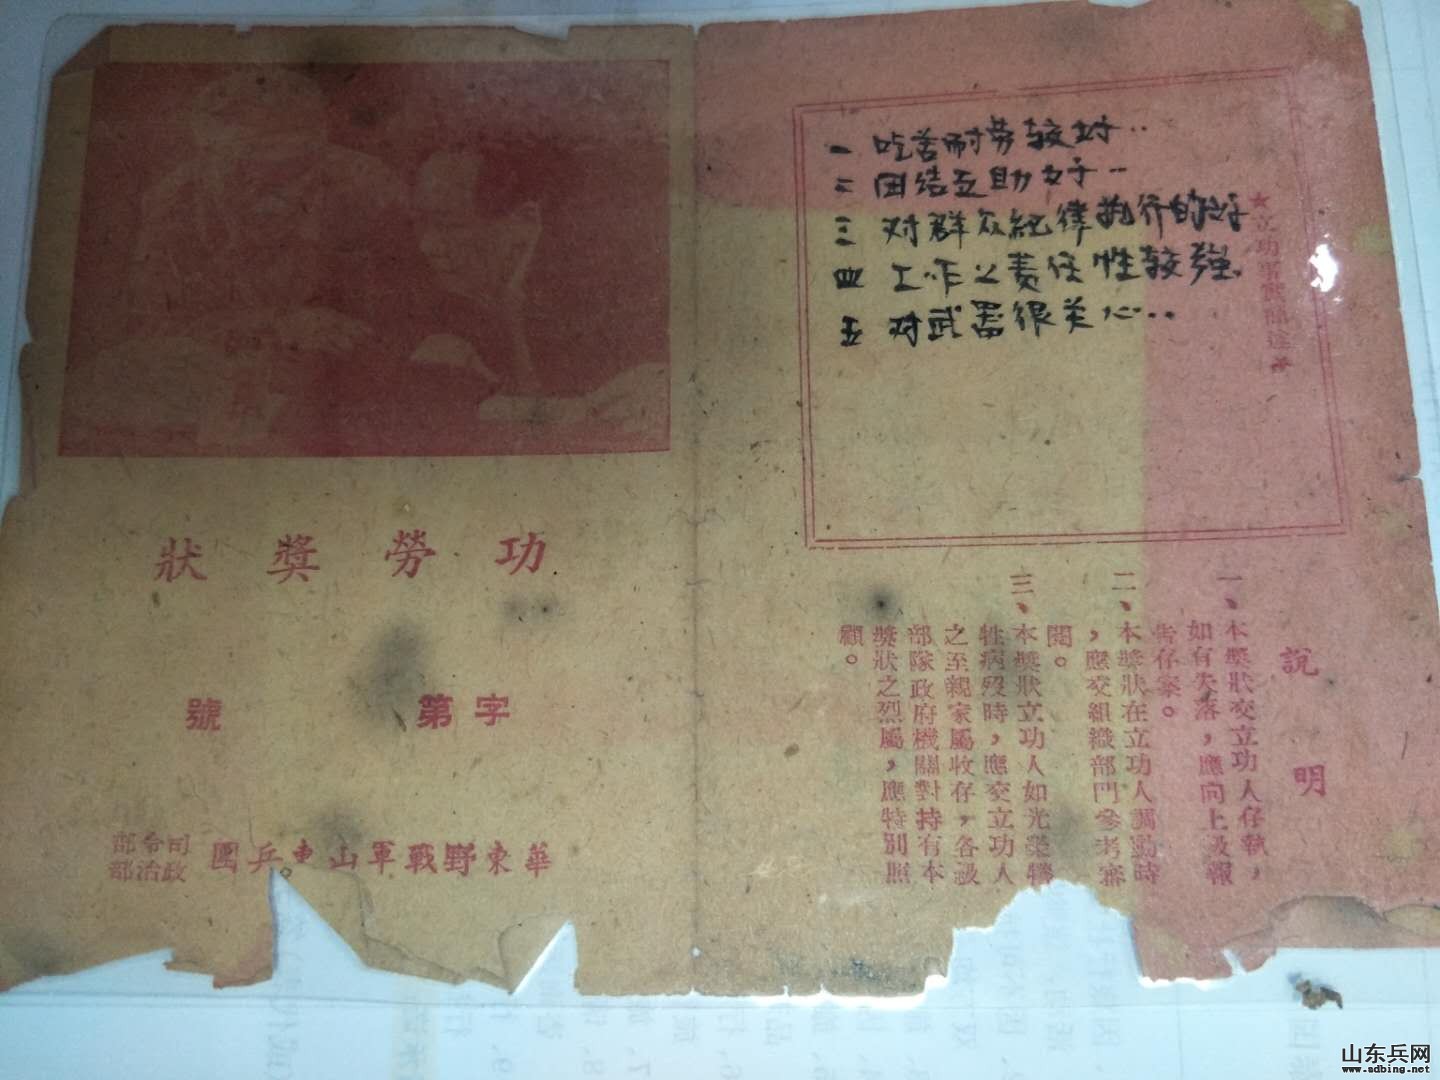 一 吃苦耐劳较好..
二 团结互助好..
三 对群众纪律执行的好
四 工作上责任性较强.
五 对武器很关心...
★立功事蹟
說明
一、本獎狀交立功人存執，
如有失落，應向上級報
告存案。
二、本獎狀在立功人調動時
，應交組織部門參考審
閱。
三、本獎狀立功人如光榮犧
牲病歿時，應交立功人
之至親家屬收存，各級
部隊政府機關對持有本
獎狀之烈屬，應特別照
顧。
狀獎勞功
號 第字
部令司
部治政
團兵東山軍戰野東華
山东兵网
www.sdbing.net